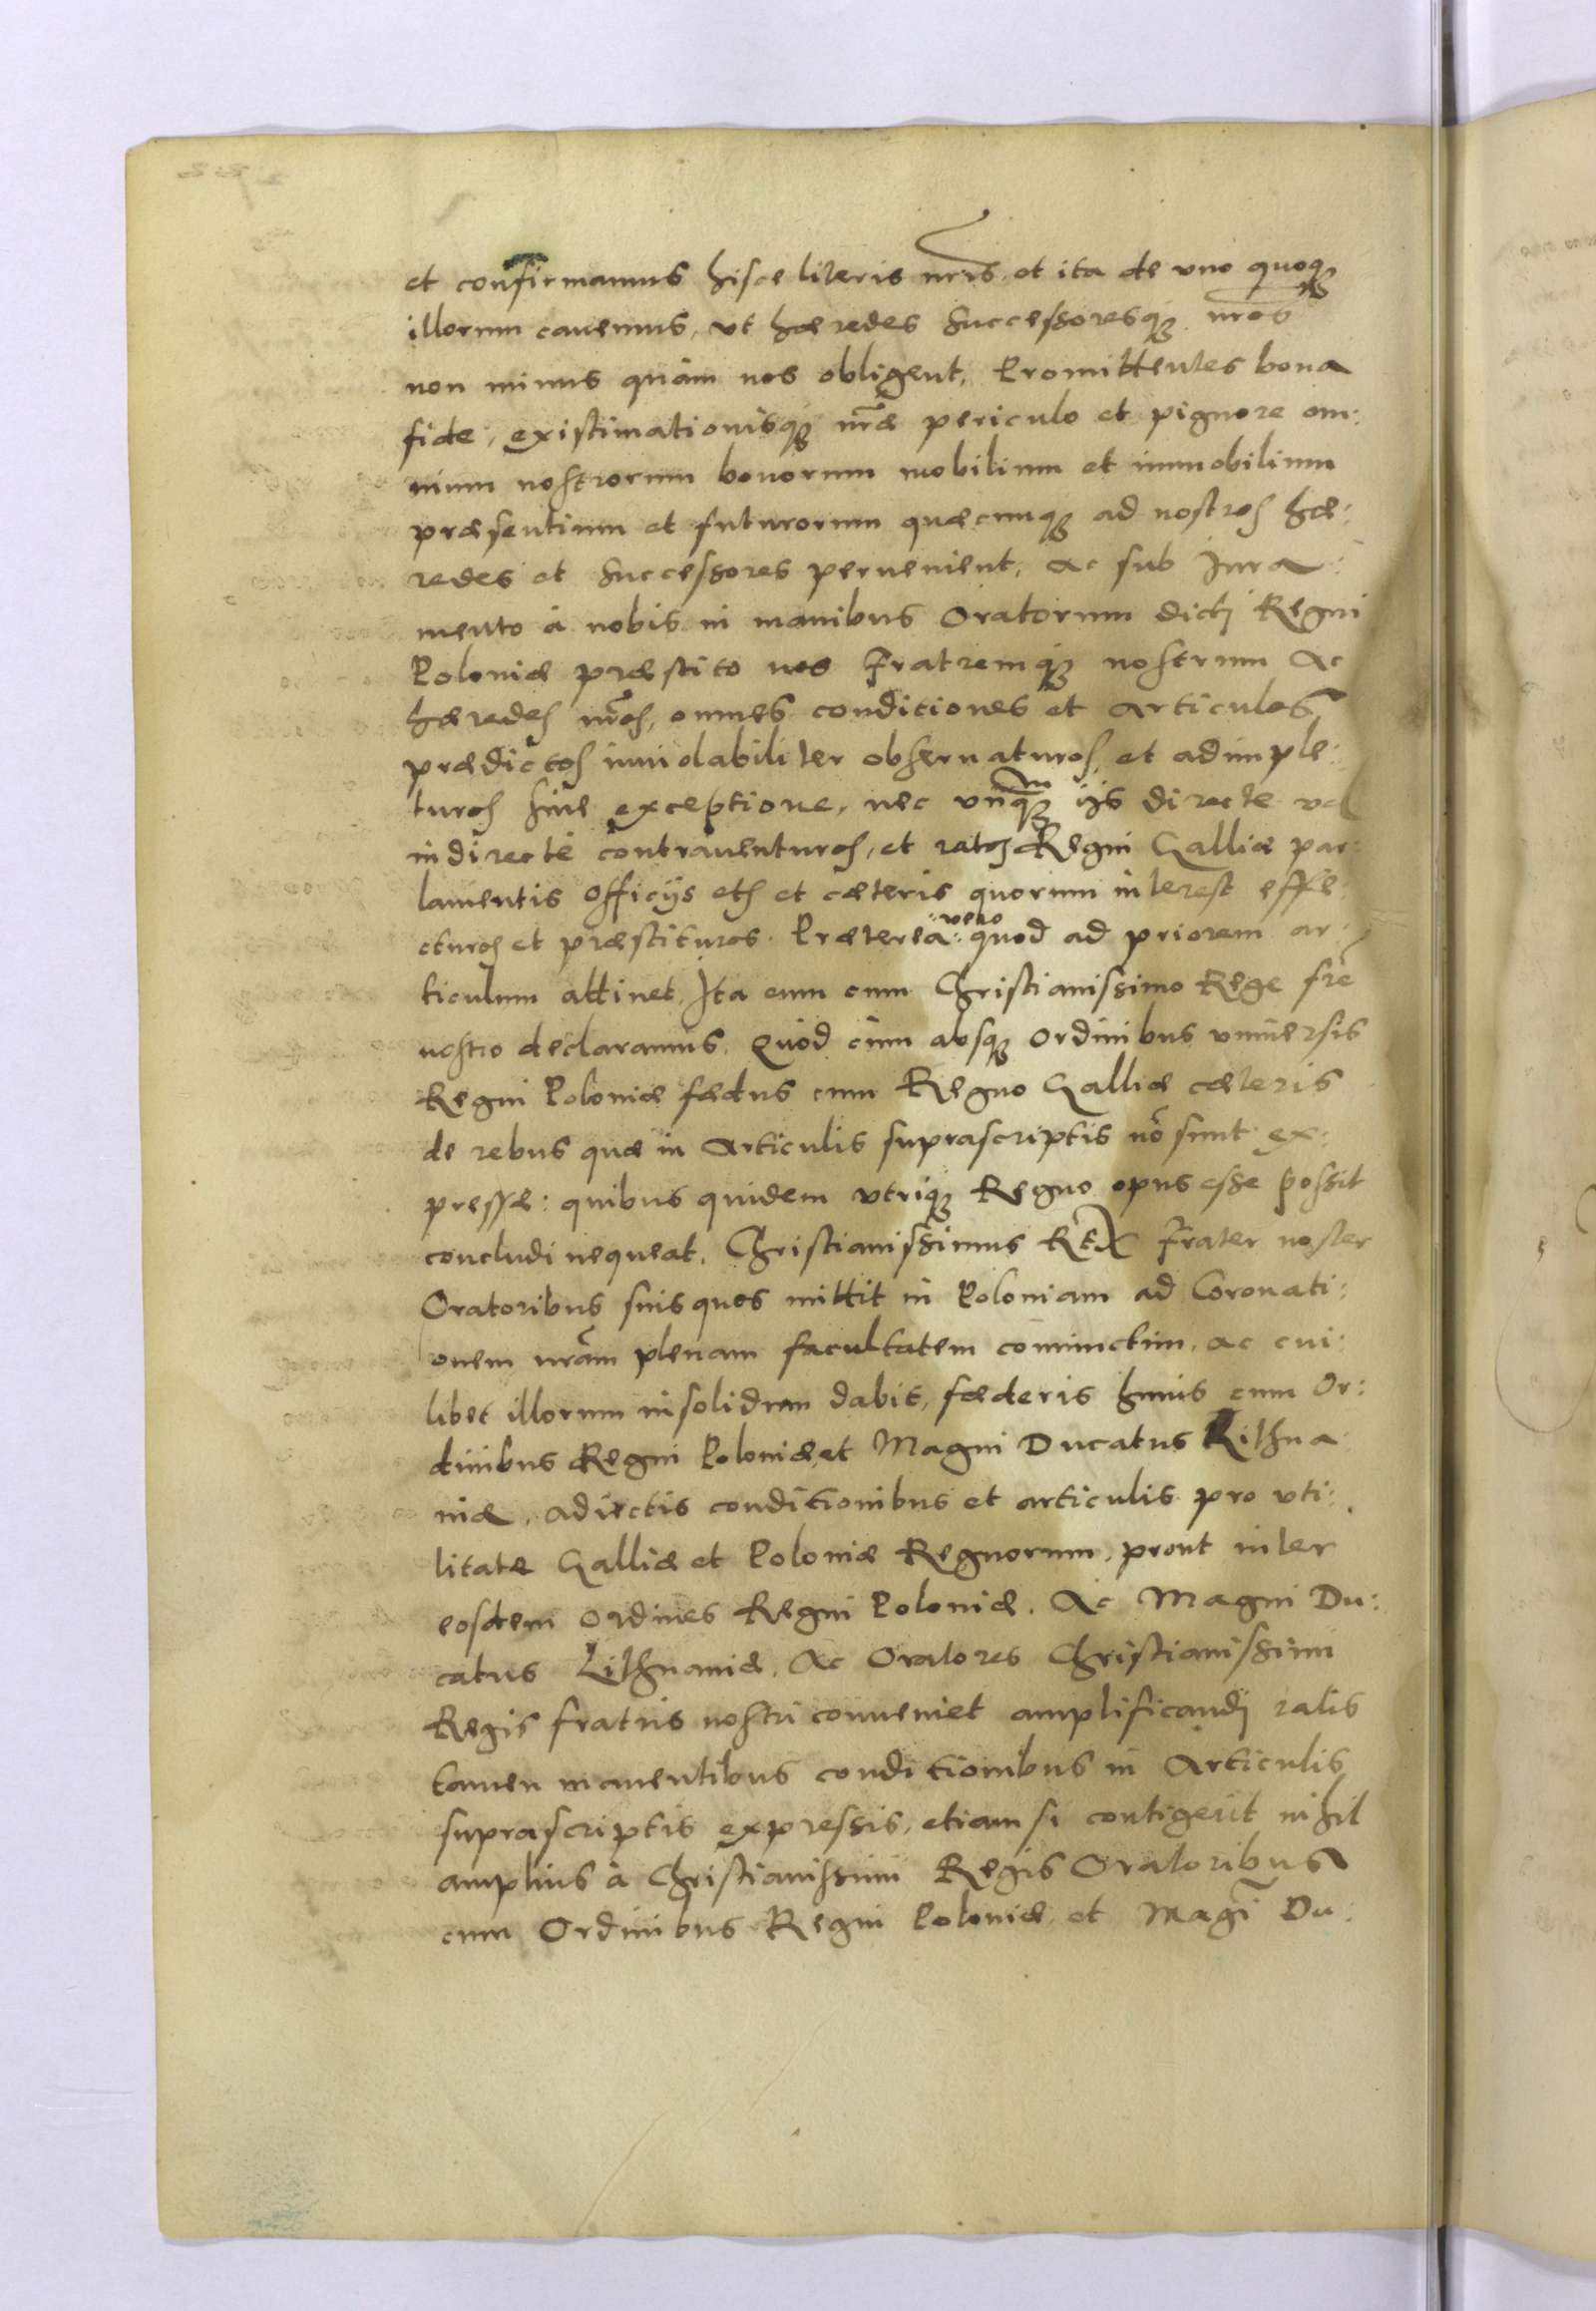 et confirmamus hisce literis nr̃is et ita de vno quoq;
illorum cauemus, vt hæredes Successoresq; nr̃os
non minus quàm nos obligent, Promittentes bona
fide, existimationisq; nr̃æ periculo et pignore om:
nium nostrorum bonorum mobilium et immobilium
præsentium et futurorum quæcunq; ad nostros hæ:
redes et Successores peruenient, ac sub Jura:
mento à nobis in manibus Oratorum dicti Regni
Poloniæ præstito nos Fratremq; nostrum Ac
hæredes nr̃os, omnes conditiones et Articulos
prædictos inuiolabiliter obseruaturos, et adimple:
turos sine exceptione, nec vnq̃; ijs directe vel
indirecte contrauenturos, et ratos Regni Galliæ par:
lamentis officijs etc et cæteris quorum interest effe:
cturos et præstituros. Prætereà vero quod ad priorem ar:
ticulum attinet, Ita eum cum Christianissimo Rege frẽ
nostro declaramus, Quòd cùm absq; ordinibus vniuersis
Regni Poloniæ fædus cum Regno Galliæ cæteris
de rebus quæ in Articulis suprascriptis nõ sunt ex:
pressæ: quibus quidem vtriq; Regno opus esse possit
concludi nequeat, Christianissimus REX Frater noster
Oratoribus suis quos mittit in Poloniam ad Coronati:
onem nr̃am plenam facultatem coniunctim, ac cui:
libet illorum insolidum dabit, fæderis huius cum Or:
dinibus Regni Poloniæ, et Magni Ducatus Lithua
niæ, adiectis conditionibus et articulis pro vti:
litate Galliæ et Poloniæ Regnorum, prout inter
eosdem ordines Regni Poloniæ, Ac Magni Du:
catus Lithuaniæ, Ac Oratores Christianissimi
Regis fratris nostri conueniet amplificandi ratis
tamen manentibus conditionibus in Articulis
suprascriptis expressis, etiam si contigerit nihil
amplius à Christianissimi Regis Oratoribus
cum Ordinibus Regni Poloniæ, et Magñi Du: